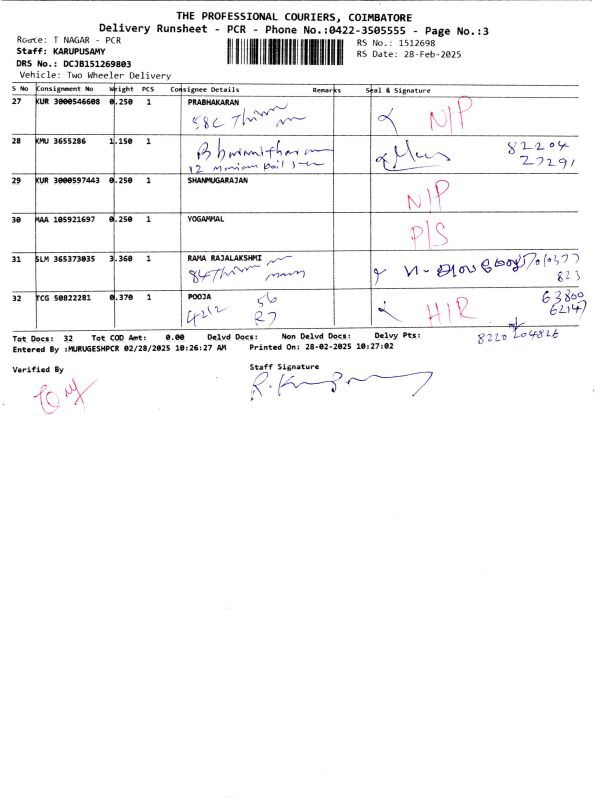 THE PROFESSIONAL COURIERS, COIMBATORE
Delivery Runsheet - PCR - Phone No.:0422-3505555 - Page No.:3
Route: T NAGAR - PCR
RS No.: 1512698
Staff: KARUPUSAMY
RS Date: 28-Feb-2025
DRS No.: DCJB151269803
Vehicle: Two Wheeler Delivery
S No Consignment No Weight PCS Consignee Details Remarks Seal & Signature
27 KUR 3000546608 0.250 1 PRABHAKARAN
58C N/P
28 KMU 3655286 1.150 1
82204
27291
12
29 KUR 3000597443 0.250 1 SHANMUGARAJAN
N/P
30 MAA 105921697 0.250 1 YOGAMMAL
P/S
31 SLM 365373035 3.360 1 RAMA RAJALAKSHMI
84
823
32 TCG 50822281 0.370 1 POOJA
56 H/R 63800
4212 62147
Tot Docs: 32 Tot COD Amt: 0.00 Delvd Docs: Non Delvd Docs: Delvy Pts:
8220 204826
Entered By :MURUGESHPCR 02/28/2025 10:26:27 AM Printed On: 28-02-2025 10:27:02
Verified By Staff Signature